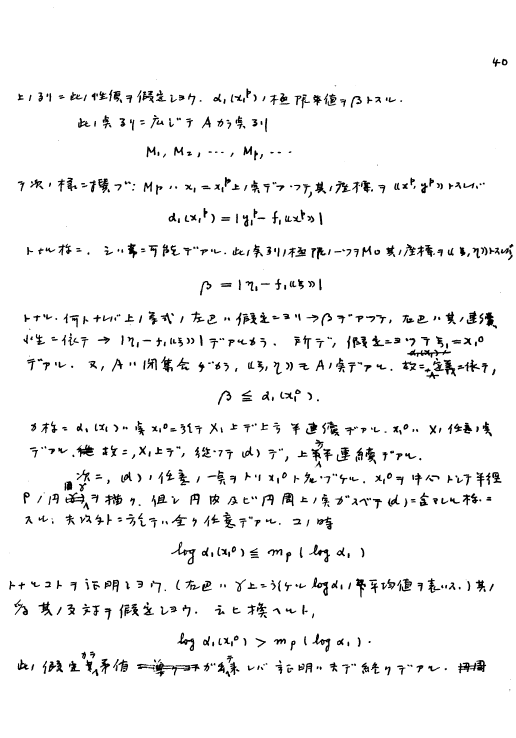 40
上ノ列ニ此ノ性質ヲ假定シヨウ. α₁(x₁ᵖ)ノ極限値ヲβトスル.
此ノ点列ニ広ジテ A カラ点列
M₁, M₂, ···, Mp, ···
ヲ次ノ様ニ撰ブ: Mp ハ x₁ = x₁ᵖ 上ノ点デアツテ, 其ノ座標ヲ ((xᵖ, yᵖ)) トスレバ
α₁(x₁ᵖ) = |y₁ᵖ − f₁((xᵖ))|
トナル様ニ. 之ハ常ニ可能デアル. 此ノ点列ノ極限ノ一ツヲ M₀ 其ノ座標ヲ ((ξ, η)) トスレバ
β = |η₁ − f₁((ξ))|
トナル. 何トナレバ上ノ等式ノ左辺ハ假定ニヨリ → β デアツテ, 右辺ハ其ノ連續
性ニ依テ → |η₁ − f₁((ξ))| デアルカラ. 所デ, 假定ニヨツテ ξ₁ = x₁⁰
デアル. 又, A ハ閉集合ダカラ, ((ξ, η)) モ A ノ点デアル. 故ニ定義ニ依テ,
β ≦ α₁(x₁⁰).
カ様ニ α₁(x₁) ハ点 x₁⁰ ニ於テ X₁ 上デ上ヲ半連續デアル. x₁⁰ ハ X₁ ノ任意ノ点
デアル. 故ニ, X₁ 上デ, 従ツテ (α) デ, 上ヲ半連續デアル.
次ニ, (α) ノ任意ノ一点ヲトリ x₁⁰ ト名ヅケル. x₁⁰ ヲ中心トシテ半径
ρ ノ円周 γ ヲ描ク. 但シ円内及ビ円周上ノ点ガスベテ (α) ニ含マレル様ニ
スル. 夫以外ニ於テハ全ク任意デアル. コノ時
log α₁(x₁⁰) ≦ mρ (log α₁)
トナルコトヲ証明シヨウ. (右辺ハ γ 上ニ於ケル log α₁ ノ平均値ヲ表ハス.) 其ノ
為其ノ反対ヲ假定シヨウ. 云ヒ換ヘルト,
log α₁(x₁⁰) > mρ (log α₁).
此ノ假定カラ矛盾ガ出テ来レバ証明ハ夫デ終リデアル.